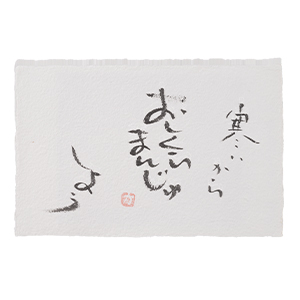 寒いから
おしくら
まんじゅ
しよう